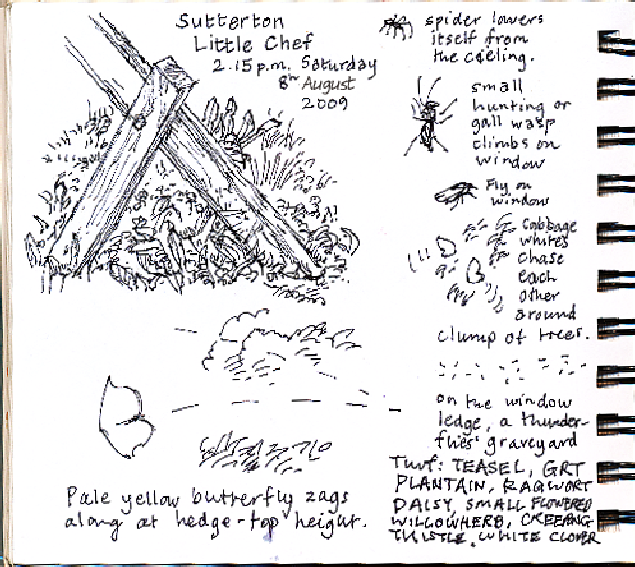 Sutterton
Little Chef
2.15 p.m. Saturday
8th August
2009
spider lowers
itself from
the ceeling.
small
hunting or
gall wasp
climbs on
window
Fly on
window
cabbage
whites
chase
each
other
around
clump of trees.
on the window
ledge, a thunder-
flies' graveyard
Turf: TEASEL, GRT
PLANTAIN, RAGWORT
DAISY, SMALL FLOWERED
WILLOWHERB, CREEPING
THISTLE, WHITE CLOVER
Pale yellow butterfly zags
along at hedge-top height.